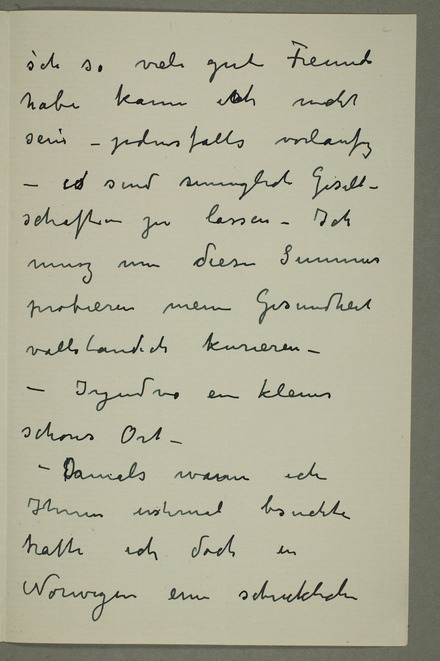 ich so viele gute Freunde
habe kann ich nicht
sein – jedenfalls vorläufig
– es sind unmöglich Gesell-
schaften zu lassen – Ich
musz nun diesen Summer
probieren meine Gesundheit
vollständich kurieren –
– Irgendwo ein kleines
schönes Ort –
– Damals wann ich
Ihnen erstmal besuchte
hatte ich doch in
Norwegen eine schreckliche